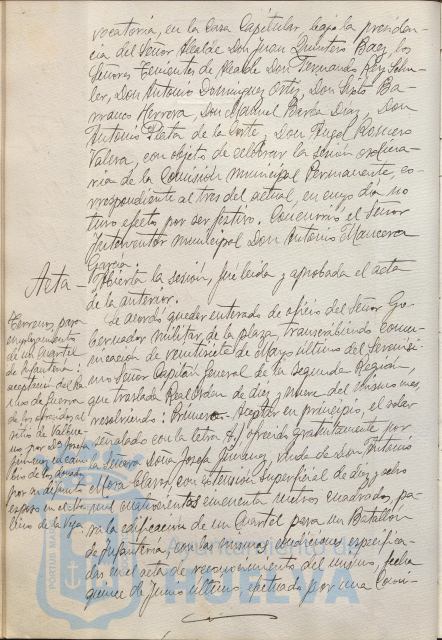 vocatoria, en la Casa Capitular bajo la presiden-
cia del Señor Alcalde Don Juan Quintero Baez, los
Señores Tenientes de Alcalde Don Fernando Rey
Don Antonio Dominguez Ortiz, Don Sixto Ba-
rranco Herrera, Don Manuel Barba Diaz, Don
Antonio Prieta de la Corte y Don Angel Romero
Valera, con objeto de celebrar la sesión ordina-
ria de la Comisión Municipal Permanente, co-
rrespondiente al tres del actual, en cuyo día no
tuvo efecto por ser festivo. Concurrió el Señor
Interventor municipal Don Antonio Mancera
Garcia.
Acta - Abierta la sesión, fué leida y aprobada el acta
de la anterior.
Terrenos para
emplazamiento
de un Cuartel
de Infantería:
aceptación del Ra-
mo de Guerra
de los ofrecidos al
sitio de
por Dª Josefa
Jimenez,
los donados
por su difunto
esposo en el
de la Vega
Se acordó quedar enterado de oficio del Señor Go-
bernador militar de la plaza, transcribiendo comu-
nicación de veintisiete de Mayo último del Serenisi-
mo Señor Capitan General de la segunda Region,
que traslada Real orden de diez y nueve del mismo mes
resolviendo: Primero - Aceptar en principio, el solar
señalado con la letra A, ofrecido gratuitamente por
la Señora Doña Josefa Jimenez, viuda de Don Antonio
Mora Claros, con extensión superficial de diez y ocho
mil cuatrocientos cincuenta metros cuadrados, pa-
ra la edificación de un Cuartel para un Batallón
de Infantería, con las mismas condiciones especifica-
das en el acta de reconocimiento del mismo, fecha
quince de Junio último, efectuado por una Comi-
Ayuntamiento de
HUELVA